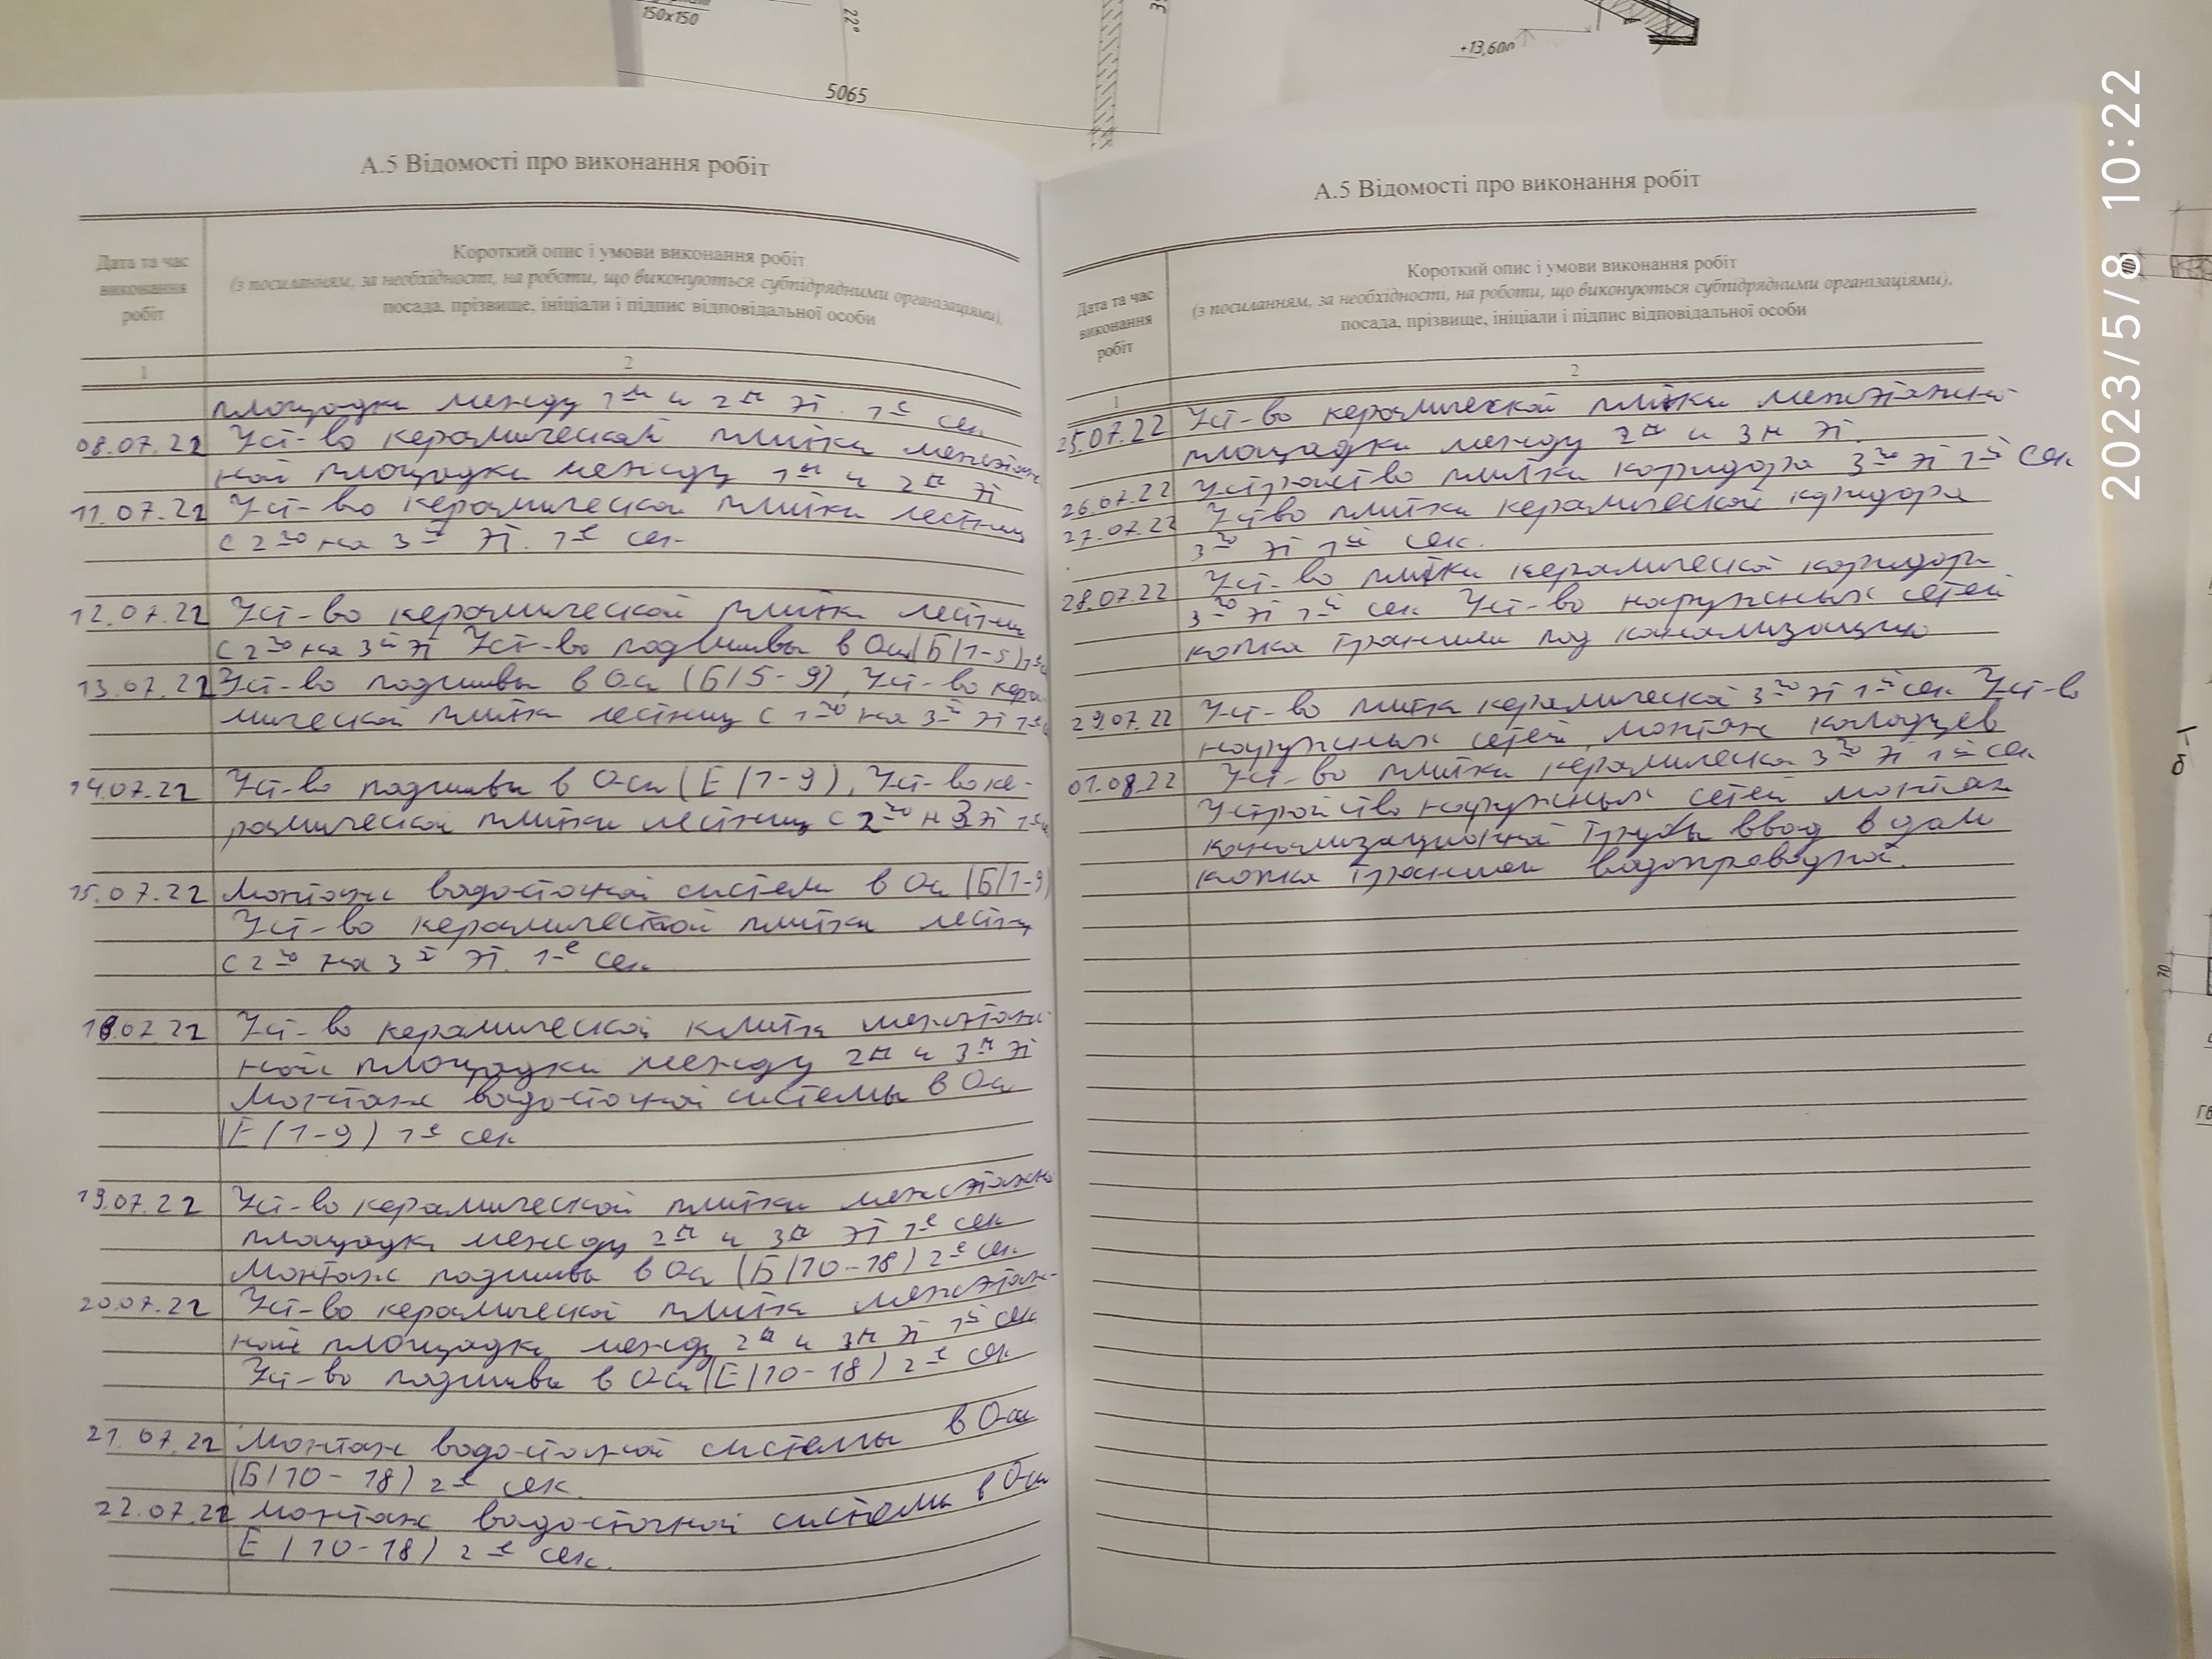 150х150
22°
5065
+13,600
2023/5/8 10:22
70
А.5 Відомості про виконання робіт
Дата та час
виконання
робіт
Короткий опис і умови виконання робіт
(з посиланням, за необхідності, на роботи, що виконуються субпідрядними організаціями),
посада, прізвище, ініціали і підпис відповідальної особи
1
2
площадки между 1м и 2м эт. 1й сек
08.07.22 Уст-во керамической плитки межэтаж
ной площадки между 1м и 2м эт
11.07.22 Уст-во керамической плитки лестниц
с 2го на 3й эт. 1й сек
12.07.22 Уст-во керамической плитки лестниц
с 2го на 3й эт Уст-во подшивы в Оси (Б/1-5)
13.07.22 Уст-во подшивы в Оси (Б/5-9), Уст-во кера
мической плитки лестниц с 1го на 3й эт
14.07.22 Уст-во подшивы в Оси (Е/1-9), Уст-во ке-
рамической плитки лестниц с 2го н 3 эт
15.07.22 Монтаж водосточной системы в Оси (Б/1-9)
Уст-во керамической плитки лестн
с 2го на 3й эт. 1й сек
18.07.22 Уст-во керамической плитки межэтаж
ной площадки между 2м и 3м эт
Монтаж водосточной системы в Оси
Е (1-9) 1й сек
19.07.22 Уст-во керамической плитки межэтажно
площадк между 2м и 3м эт 1й сек
Монтаж подшивы в Оси (Б/10-18) 2й сек.
20.07.22 Уст-во керамической плитки межэтаж-
ной площадки между 2м и 3м эт 1й сек
Уст-во подшивы в Оси (Е/10-18) 2й сек
21.07.22 Монтаж водосточной системы в Оси
(Б/10-18) 2й сек.
22.07.22 Монтаж водосточной системы в Оси
Е /10-18) 2й сек.
А.5 Відомості про виконання робіт
Дата та час
виконання
робіт
Короткий опис і умови виконання робіт
(з посиланням, за необхідності, на роботи, що виконуються субпідрядними організаціями),
посада, прізвище, ініціали і підпис відповідальної особи
1
2
25.07.22 Уст-во керамической плитки межэтажно
площадки между 2м и 3м эт.
26.07.22 Устройство плитки коридора 3го эт 1й сек
27.07.22 Уство плитки керамической коридора
3го эт 1й сек.
28.07.22 Уст-во плитки керамической коридора
3го эт 1й сек Уст-во наружных сетей
копка траншеи под канализацию
29.07.22 Уст-во плитки керамической 3го эт 1й сек Уст-во
наружных сетей, монтаж колодцев
01.08.22 Уст-во плитки керамической 3го эт 1й сек
Устройство наружных сетей монтаж
канализационной трубы ввод в дом
копка траншеи водопроводной.